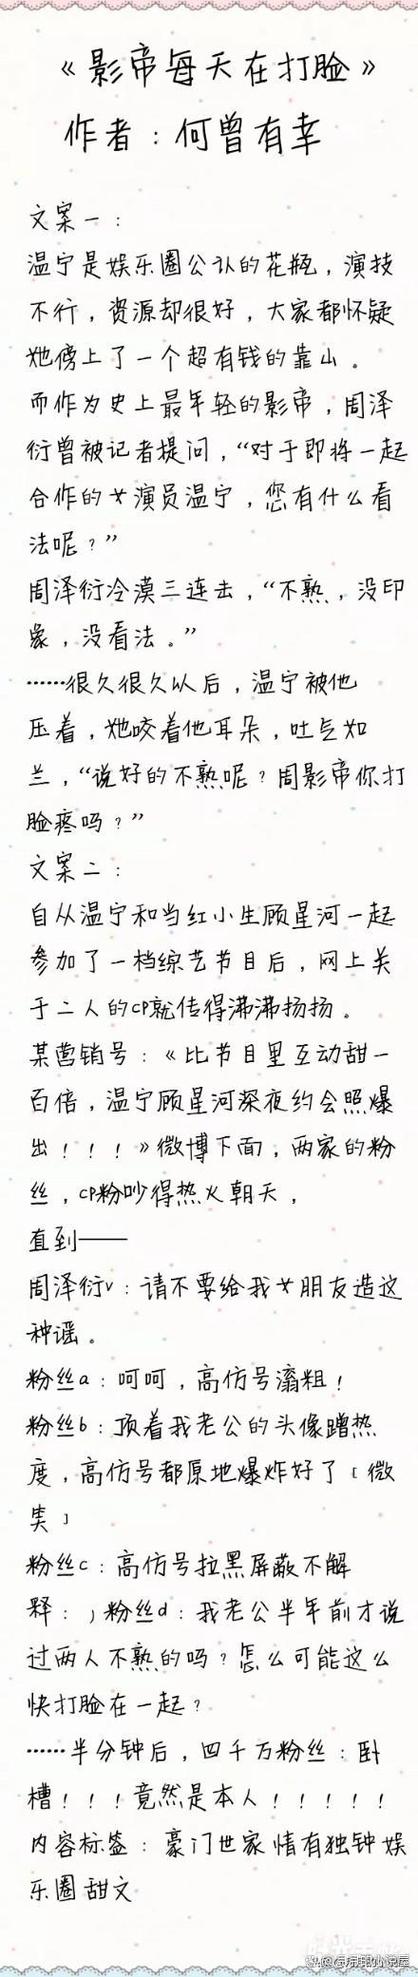 《影帝每天在打脸》
作者：何曾有幸
文案一：
温宁是娱乐圈公认的花瓶，演技
不行，资源却很好，大家都怀疑
她傍上了一个超有钱的靠山。
而作为史上最年轻的影帝，周泽
衍曾被记者提问，“对于即将一起
合作的女演员温宁，您有什么看
法呢？”
周泽衍冷漠三连击，“不熟，没印
象，没看法。”
……很久很久以后，温宁被他
压着，她咬着他耳朵，吐气如
兰，“说好的不熟呢？周影帝你打
脸疼吗？”
文案二：
自从温宁和当红小生顾星河一起
参加了一档综艺节目后，网上关
于二人的CP就传得沸沸扬扬。
某营销号：《比节目里互动甜一
百倍，温宁顾星河深夜约会照爆
出！！！》微博下面，两家的粉
丝，CP粉吵得热火朝天，
直到——
周泽衍v：请不要给我女朋友造这
种谣。
粉丝a：呵呵，高仿号滚粗！
粉丝b：顶着我老公的头像蹭热
度，高仿号都原地爆炸好了［微
笑］
粉丝c：高仿号拉黑屏蔽不解
释：）粉丝d：我老公半年前才说
过两人不熟的吗？怎么可能这么
快打脸在一起？
……半分钟后，四千万粉丝：卧
槽！！！竟然是本人！！！！！
内容标签：豪门世家情有独钟娱
乐圈甜文